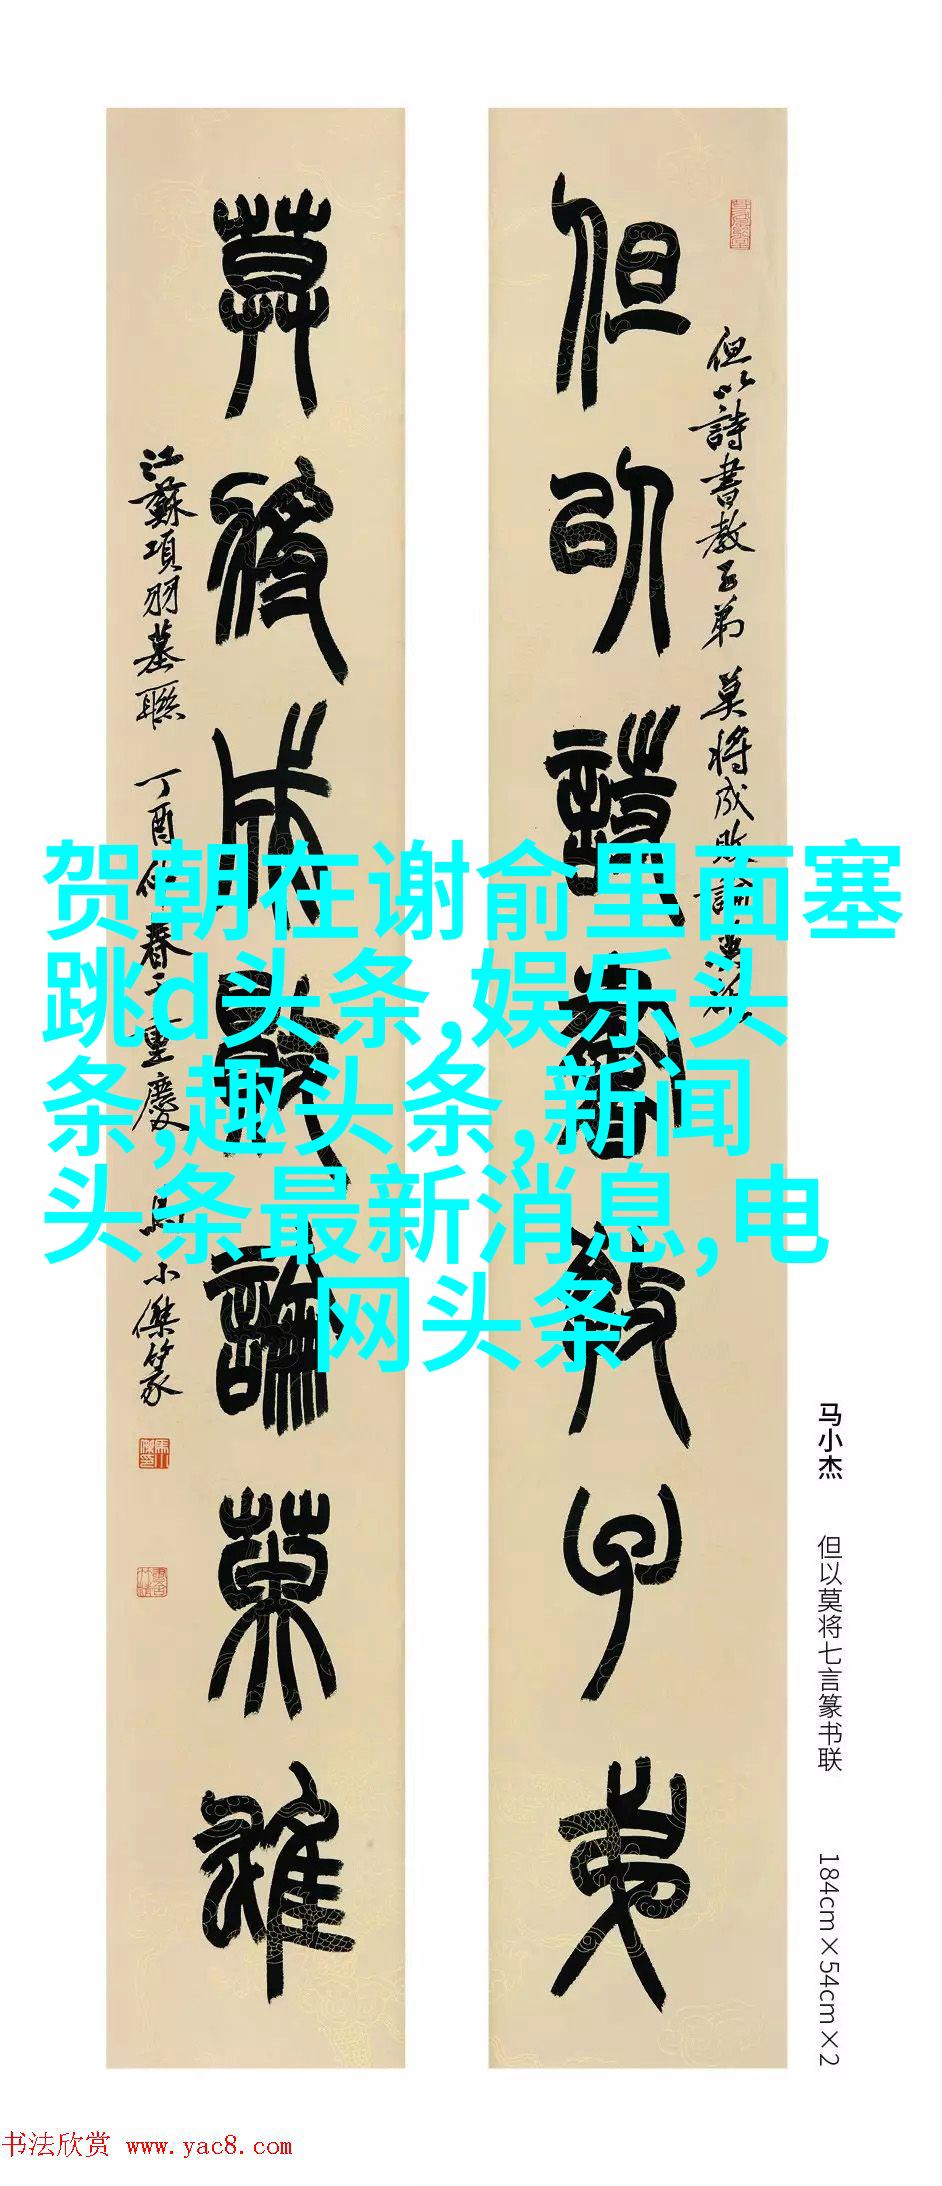 但以詩書教子弟
但以詩書教子弟 莫將成敗論英雄
莫將成敗論英雄
江蘇項羽墓聯 丁酉仲春 重慶 馬小傑篆
贺朝在谢俞里面塞
跳d头条,娱乐头
条,趣头条,新闻
头条最新消息,电
网头条
马小杰 但以莫将七言篆书联 184cm×54cm×2
书法欣赏 www.yac8.com